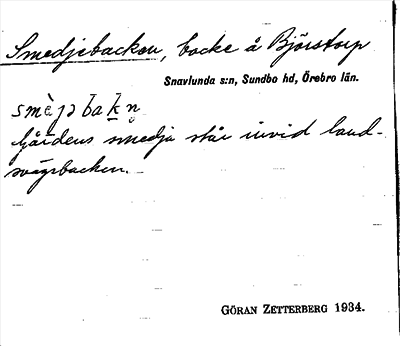 Smedjebacken, backe å Björstorp
Snavlunda s:n, Sundbo hd, Örebro län.
smɛ̀jəbakn̥
Gårdens smedja står invid land-
svägsbacken.
GÖRAN ZETTERBERG 1934.